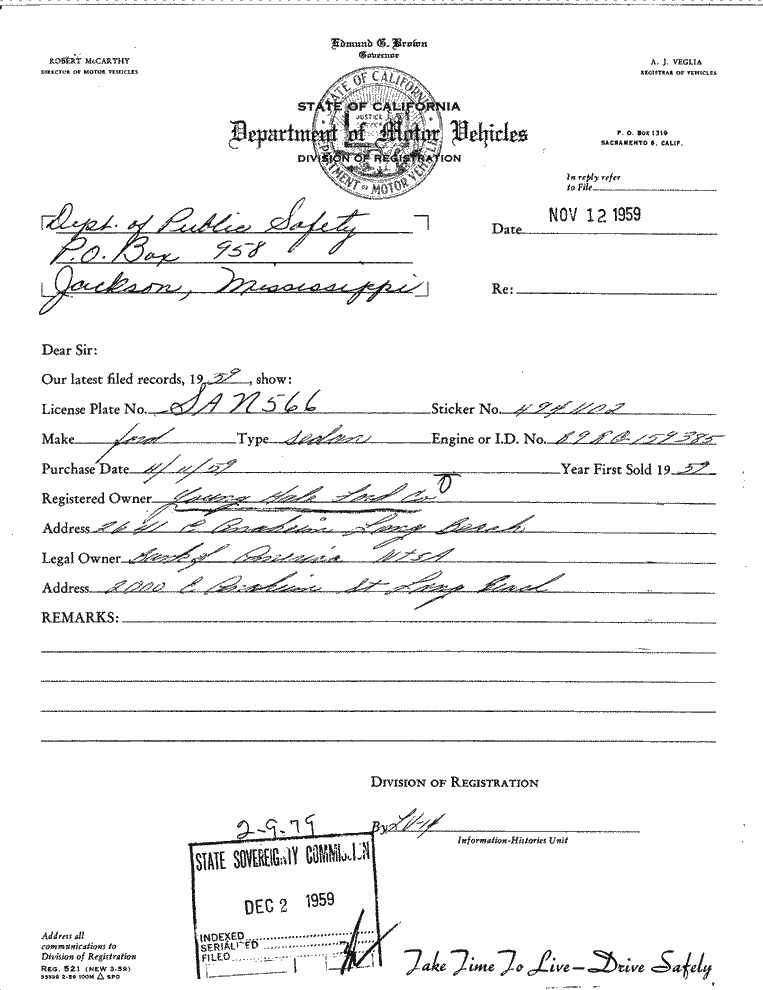 Edmund G. Brown
Governor
ROBERT McCARTHY
DIRECTOR OF MOTOR VEHICLES
A. J. VEGLIA
REGISTRAR OF VEHICLES
STATE OF CALIFORNIA
Department of Motor Vehicles
DIVISION OF REGISTRATION
P. O. Box 1319
SACRAMENTO 6, CALIF.
In reply refer
to File
Dept. of Public Safety
P.O. Box 958
Jackson, Mississippi
Date NOV 12 1959
Re:
Dear Sir:
Our latest filed records, 1959, show:
License Plate No. SAN566 Sticker No. 494402
Make ford Type sedan Engine or I.D. No. 159385
Purchase Date 4/11/59 Year First Sold 1959
Registered Owner Young Ford Co
Address 2641 E Anaheim Long Beach
Legal Owner Bank of America NTSA
Address 2000 E Anaheim St Long Beach
REMARKS:
DIVISION OF REGISTRATION
By
Information-Histories Unit
2-9-79
STATE SOVEREIGNTY COMMISSION
DEC 2 1959
INDEXED
SERIALIZED
FILED
Address all
communications to
Division of Registration
REG. 521 (NEW 3-59)
Take Time To Live—Drive Safely